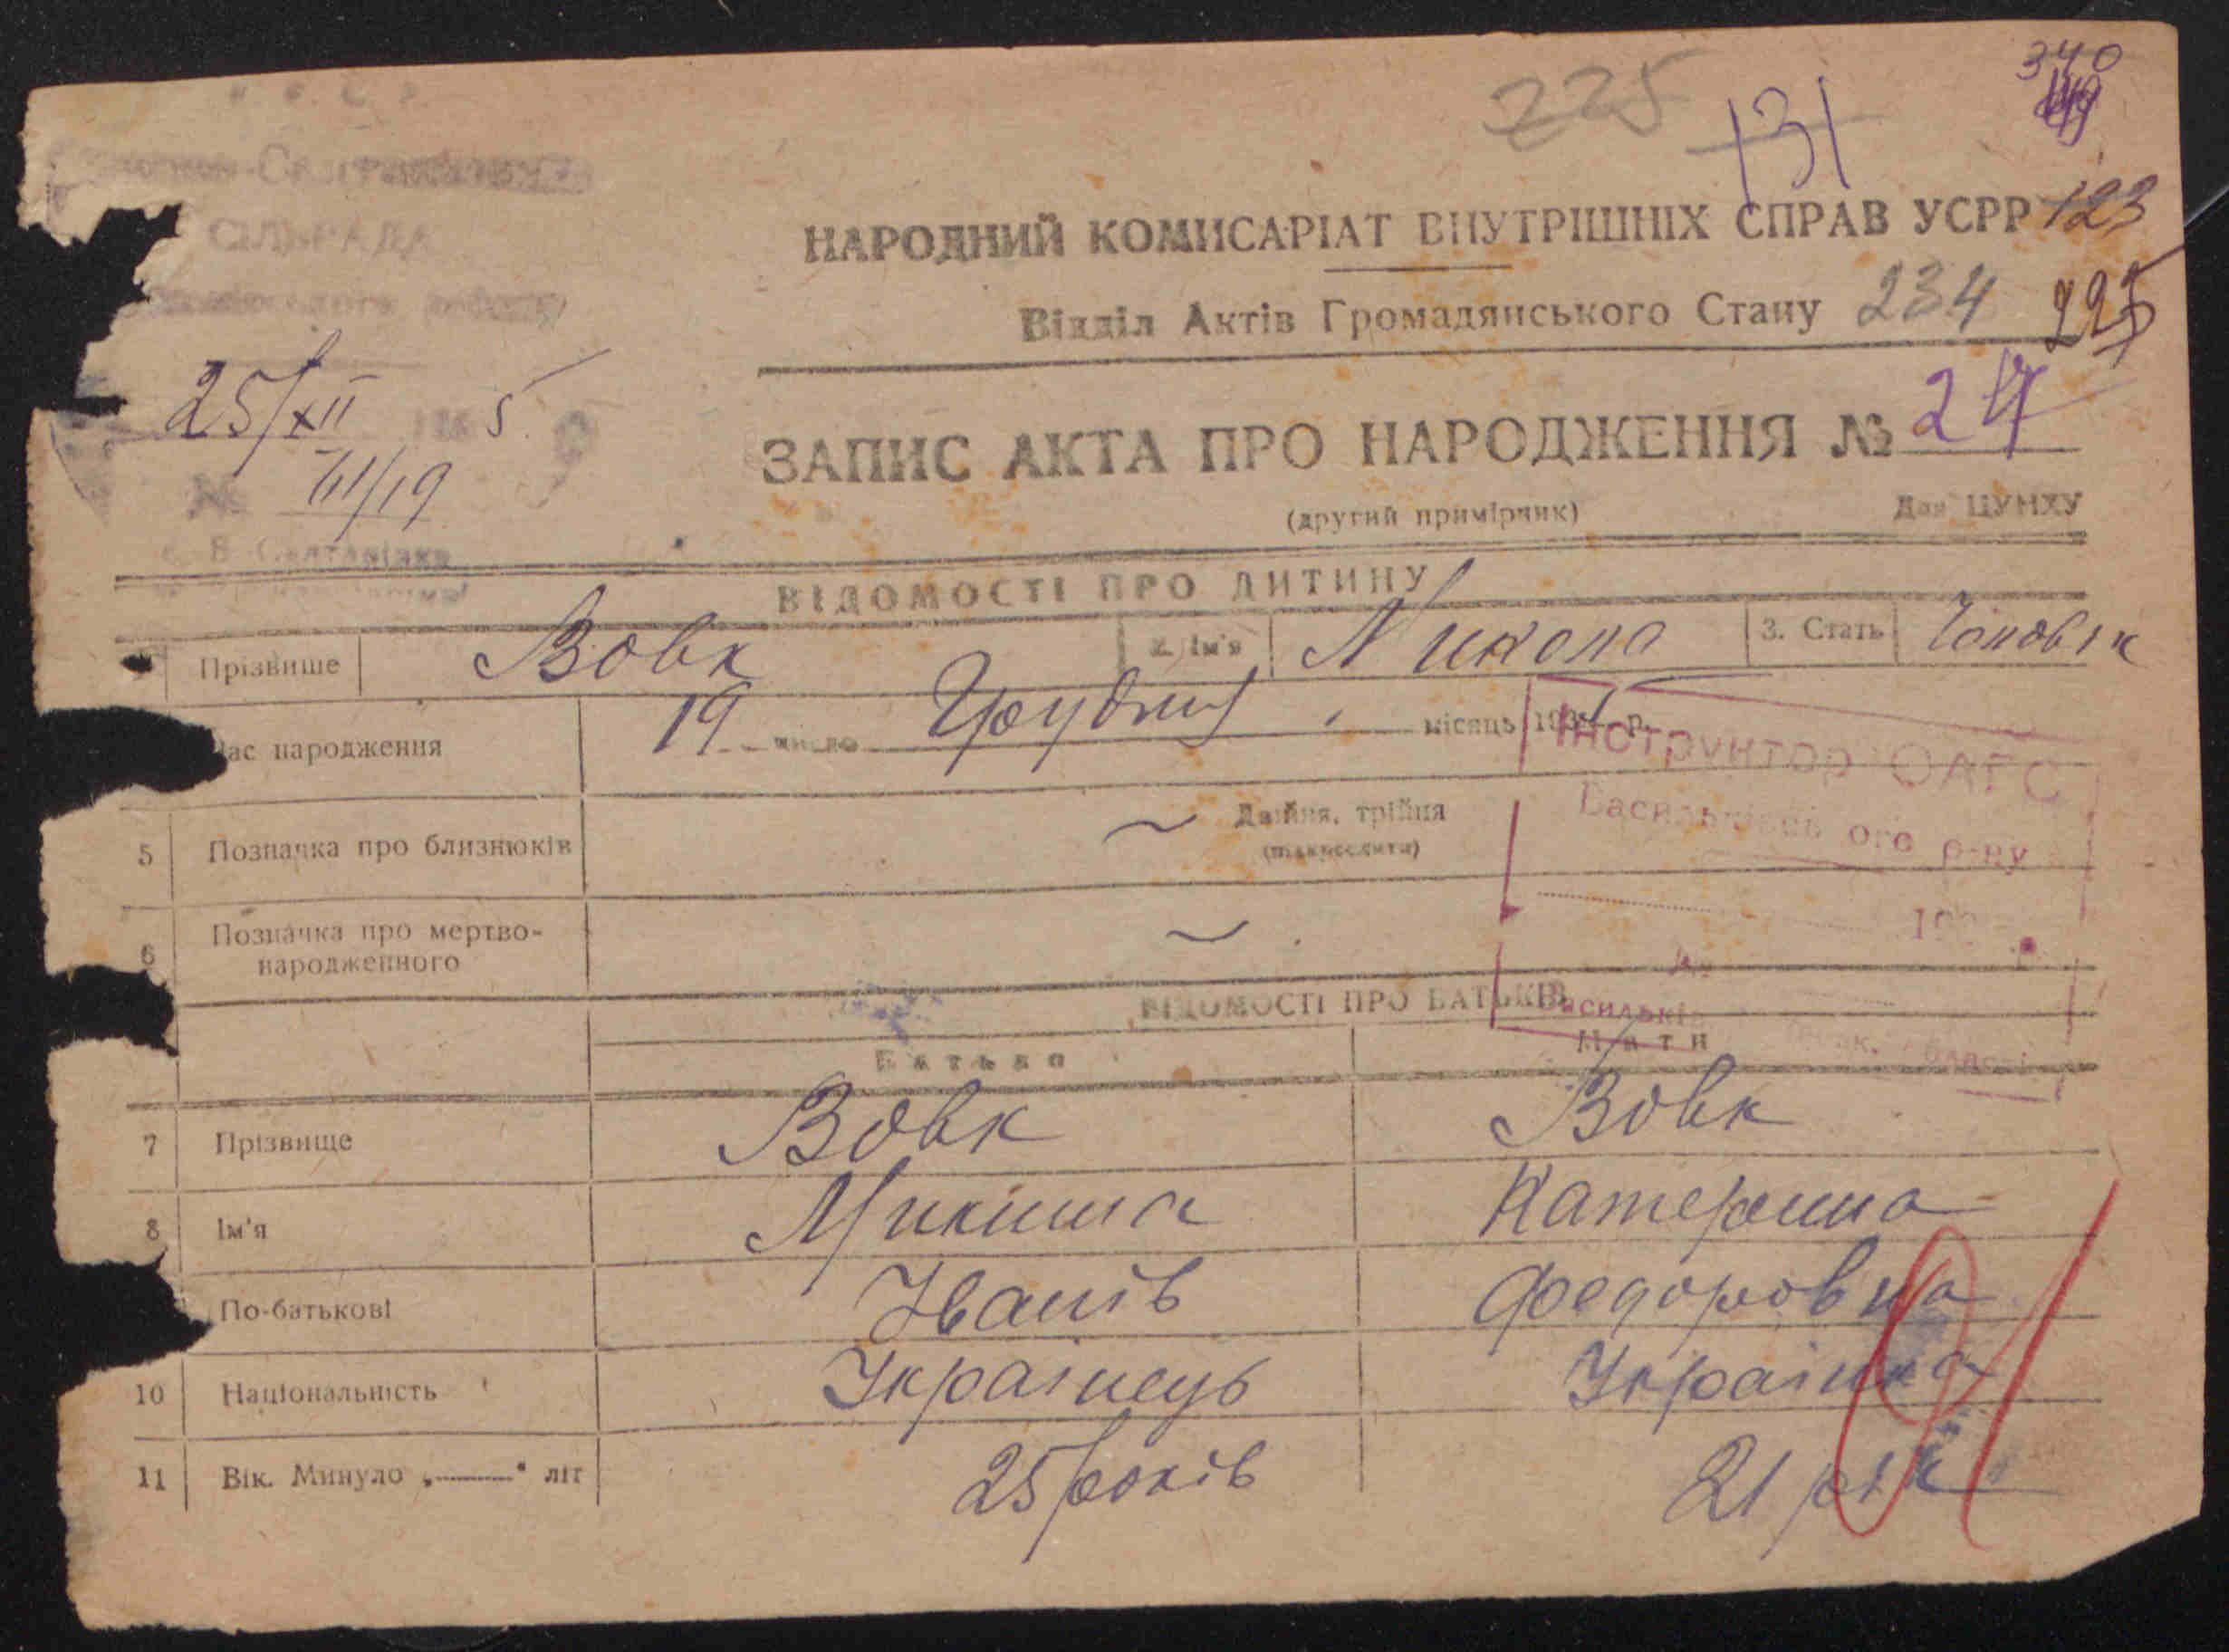 225
131
340
СІЛЬРАДА
НАРОДНИЙ КОМИСАРІАТ ВНУТРІШНІХ СПРАВ УСРР 123
Відділ Актів Громадянського Стану 234 225
25/XII 5
ЗАПИС АКТА ПРО НАРОДЖЕННЯ № 24
№ 71/19
(другий примірник) Для ЦУНХУ
с. В Салтанівка
ВІДОМОСТІ ПРО ДИТИНУ
Прізвище Вовк 2. Ім'я Микола 3. Стать Чоловік
Час народження 19 число Грудня місяць 1935 р.
Інструктор ОАГС
Васильківського р-ну
5 Позначка про близнюків Двійня, трійня
(підкреслити)
6 Позначка про мертво-
народженного
ВІДОМОСТІ ПРО БАТЬКІВ
Васильків
Батько Мати
7 Прізвище Вовк Вовк
8 Ім'я Микита Катерина
По-батькові Іванів Федоровна
10 Національність Українець Українка
11 Вік. Минуло „———“ літ 25 років 21 рік
91